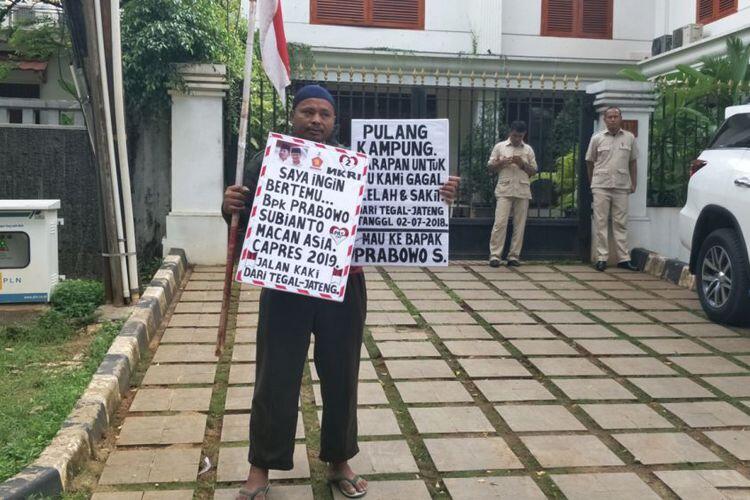 2
NKRI
SAYA INGIN
BERTEMU...
Bpk PRABOWO
SUBIANTO
MACAN ASIA.
CAPRES 2019,
JALAN KAKI
DARI TEGAL-JATENG.
PULANG
KAMPUNG.
UNTUK
KAMI GAGAL
& SAKIT
DARI TEGAL-JATENG
02-07-2018.
MAU KE BAPAK
PRABOWO S.
PLN